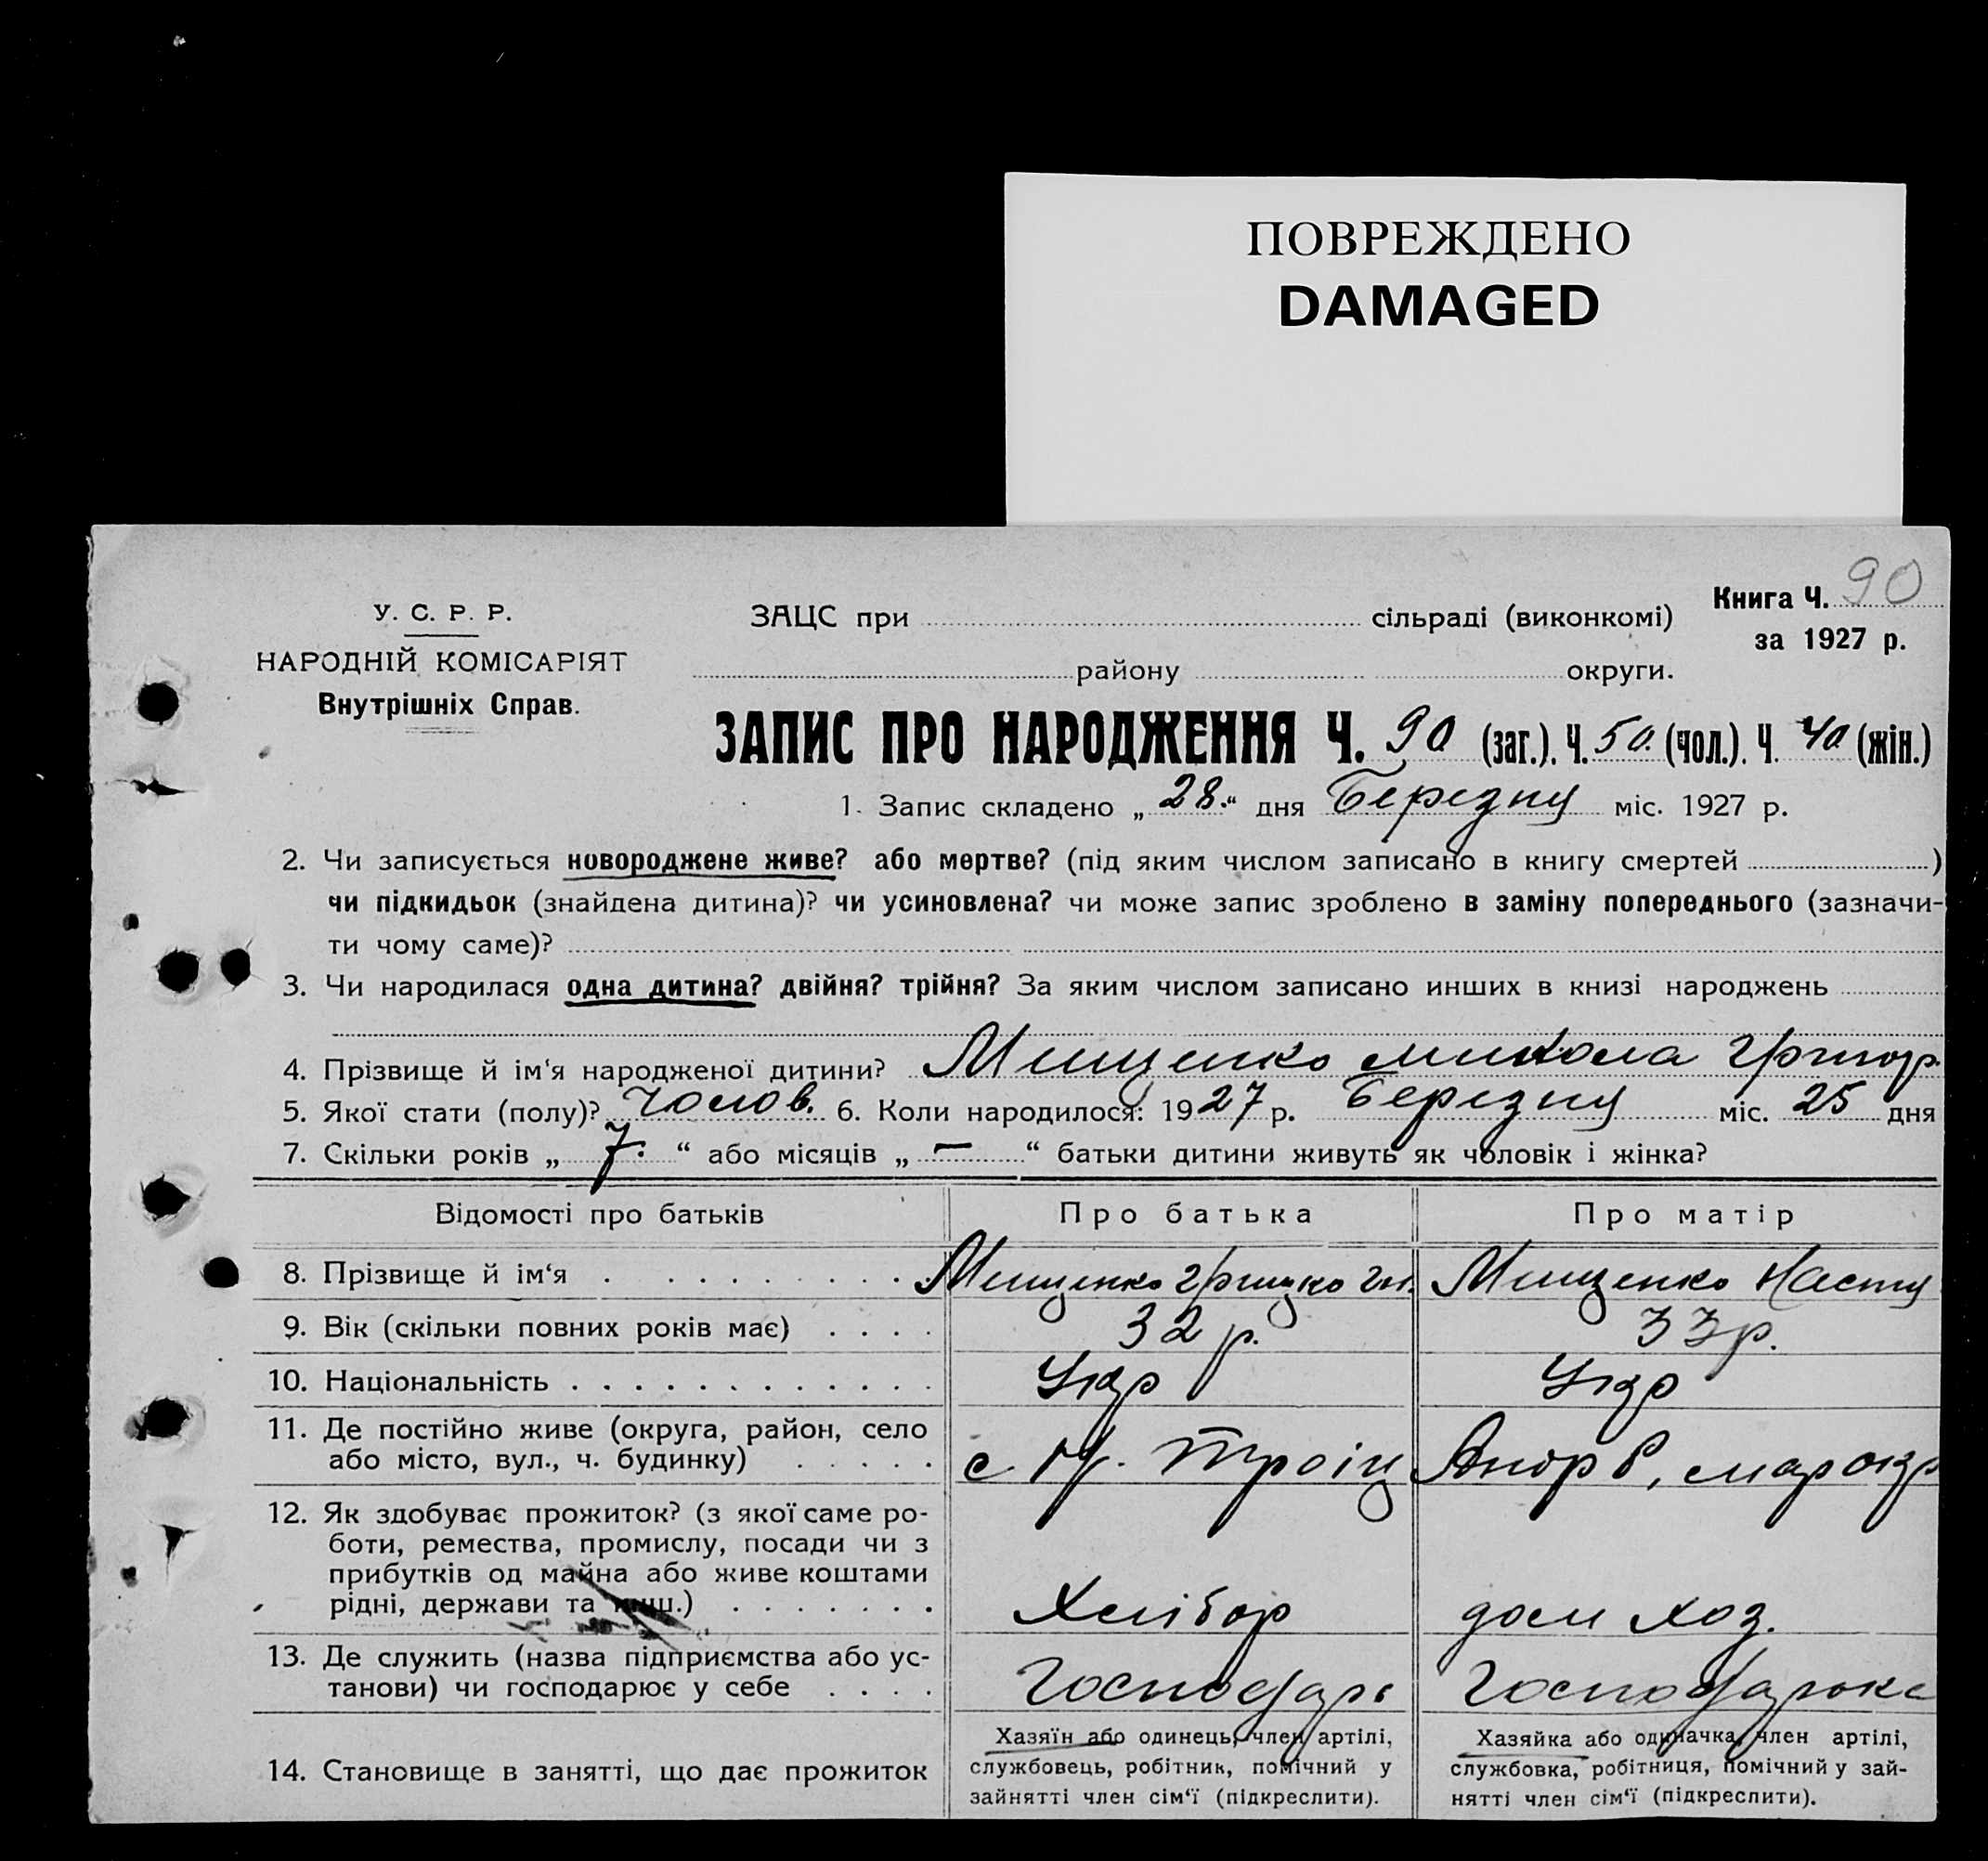 ПОВРЕЖДЕНО
DAMAGED
Книга Ч. 90
за 1927 р.
У. С. Р. Р.
НАРОДНІЙ КОМІСАРІЯТ
Внутрішніх Справ.
ЗАЦС при сільраді (виконкомі)
району округи.
ЗАПИС ПРО НАРОДЖЕННЯ Ч. 90 (заг.). Ч. 50. (чол.). Ч. 40 (жін.)
1. Запис складено „28.“ дня Березну міс. 1927 р.
2. Чи записується новороджене живе? або мертве? (під яким числом записано в книгу смертей )
чи підкидьок (знайдена дитина)? чи усиновлена? чи може запис зроблено в заміну попереднього (зазначи-
ти чому саме)?
3. Чи народилася одна дитина? двійня? трійня? За яким числом записано инших в книзі народжень
4. Прізвище й ім‘я народженої дитини? Мищенко Микола Григор.
5. Якої стати (полу)? Чолов. 6. Коли народилося: 1927 р. Березну міс. 25 дня
7. Скільки років „ 7. “ або місяців „ — “ батьки дитини живуть як чоловік і жінка?
Відомості про батьків Про батька Про матір
8. Прізвище й ім‘я Мищенко Грицко Гн. Мищенко Насту
9. Вік (скільки повних років має) 32 р. 33 р.
10. Національність Укр Укр
11. Де постійно живе (округа, район, село
або місто, вул., ч. будинку) с Троіц
12. Як здобуває прожиток? (з якої саме ро-
боти, ремества, промислу, посади чи з
прибутків од майна або живе коштами
рідні, держави та инш.) Хлібор дом хоз.
13. Де служить (назва підприємства або ус-
танови) чи господарює у себе Господарь Господарокс
14. Становище в занятті, що дає прожиток
Хазяїн або одинець, член артілі,
службовець, робітник, помічний у
зайнятті член сім‘ї (підкреслити).
Хазяйка або одиначка, член артілі,
службовка, робітниця, помічний у зай-
нятті член сім‘ї (підкреслити).